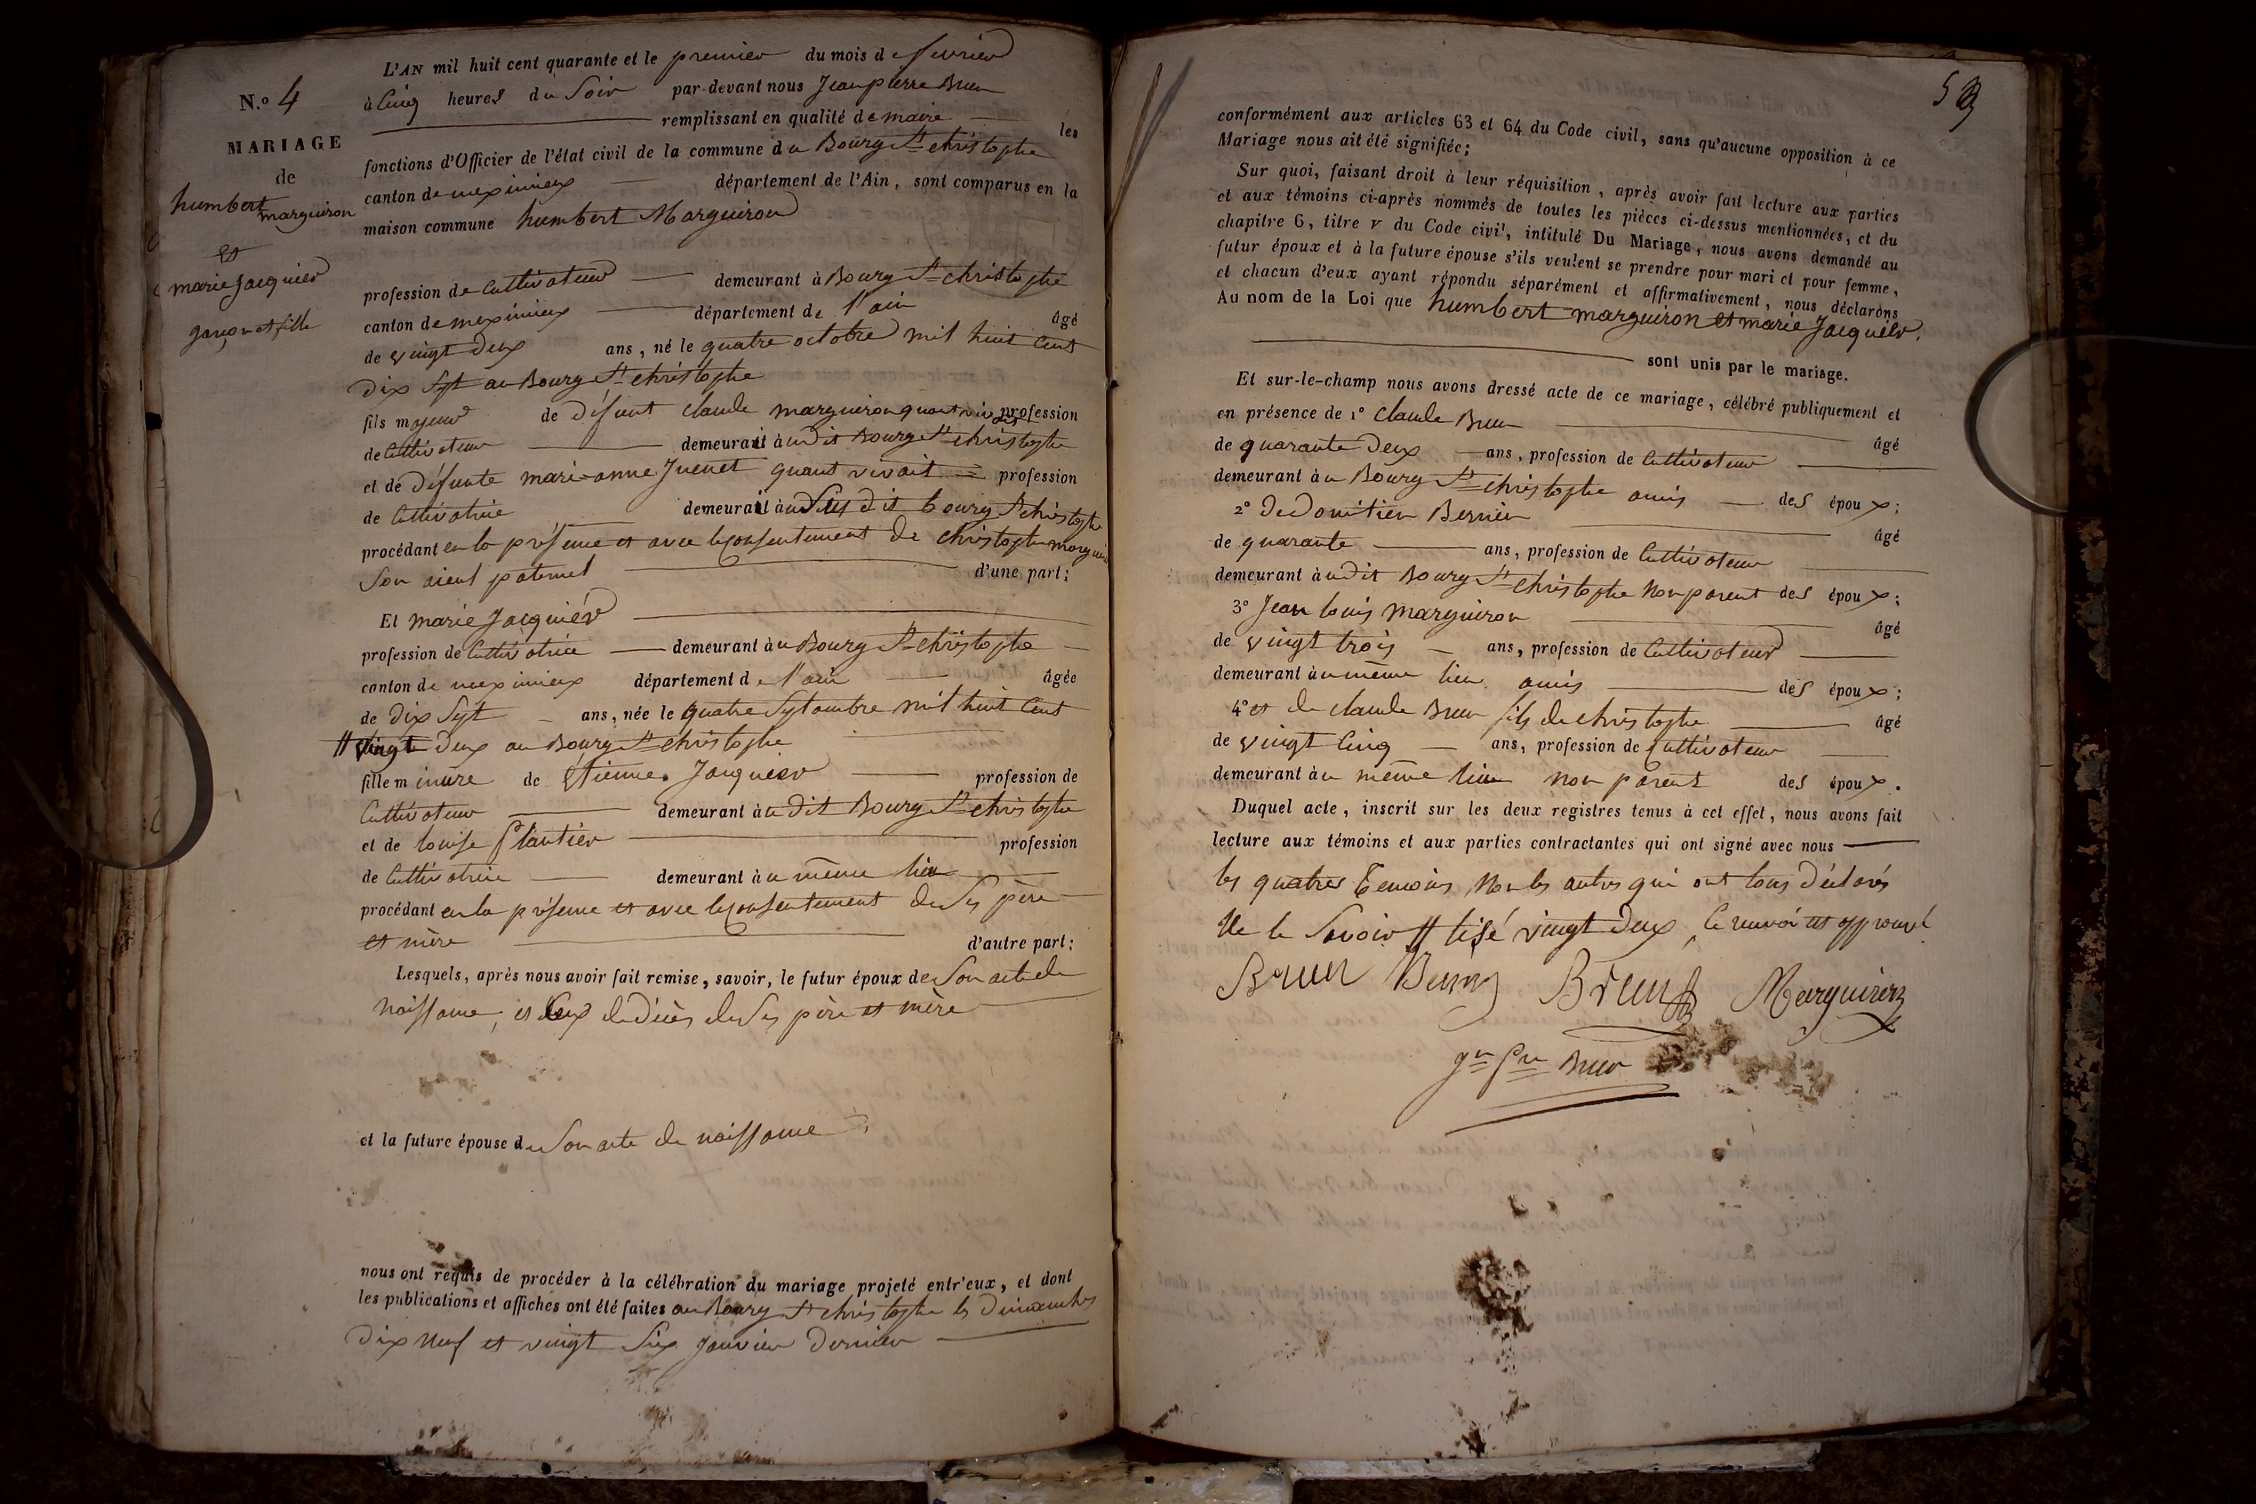 N.º 4
MARIAGE
de
humbert marguiron
et
marie Jacquier
garçon et fille
L'AN mil huit cent quarante et le premier du mois de fevrier
à Cinq heures du Soir par-devant nous Jean pierre Brun
remplissant en qualité de maire les
fonctions d'Officier de l'état civil de la commune du Bourg St christophe
canton de meximieux département de l'Ain, sont comparus en la
maison commune humbert Marguiron
profession de Cultivateur demeurant à Bourg St christophe
canton de meximieux département de l'ain âgé
de vingt deux ans, né le quatre octobre mil huit Cent
Dix Sept au Bourg St christophe
fils majeur de défunt claude marguiron quant vivait profession
de Cultivateur demeurait audit Bourg St christophe
et de défunte marie-anne Juenet quant vivait profession
de Cultivatrice demeurait au Sus dit bourg St christophe
procédant en la présence et avec le Consentement de christophe marguiron
Son aieul paternel d'une part;
Et marie Jacquiér
profession de Cultivatrice demeurant au Bourg St christophe
canton de meximieux département de l'ain âgée
de Dix Sept ans, née le quatre Septembre mil huit Cent
// vingt Deux au Bourg St christophe
fille mineure de Etienne Jacquier profession de
Cultivateur demeurant audit Bourg St christophe
et de louise Plantier profession
de Cultivatrice demeurant au même lieu
procédant en la présence et avec le Consentement de Ses père
et mère d'autre part;
Lesquels, après nous avoir fait remise, savoir, le futur époux de Son acte de
naissance, et Ceux de décès de Ses père et mère
et la future épouse de Son acte de naissance
nous ont requis de procéder à la célébration du mariage projeté entr'eux, et dont
les publications et affiches ont été faites au Bourg St christophe les Dimanches
Dix neuf et vingt Six Janvier Dernier
5
conformément aux articles 63 et 64 du Code civil, sans qu'aucune opposition à ce
Mariage nous ait été signifiée;
Sur quoi, faisant droit à leur réquisition, après avoir fait lecture aux parties
et aux témoins ci-après nommés de toutes les pièces ci-dessus mentionnées, et du
chapitre 6, titre v du Code civil, intitulé Du Mariage, nous avons demandé au
futur époux et à la future épouse s'ils veulent se prendre pour mari et pour femme,
et chacun d'eux ayant répondu séparément et affirmativement, nous déclarons
Au nom de la Loi que humbert marguiron et marie Jacquiér.
sont unis par le mariage.
Et sur-le-champ nous avons dressé acte de ce mariage, célébré publiquement et
en présence de 1º claude Brun âgé
de quarante Deux ans, profession de Cultivateur
demeurant au Bourg St christophe amis des époux;
2º De Domitien Bernin âgé
de quarante ans, profession de Cultivateur
demeurant audit Bourg St christophe Non parent des époux;
3º Jean louis marguiron âgé
de vingt trois ans, profession de Cultivateur
demeurant au même lieu amis des époux;
4º et de claude Brun fils de christophe âgé
de vingt Cinq ans, profession de Cultivateur
demeurant au même lieu non parent des époux.
Duquel acte, inscrit sur les deux registres tenus à cet effet, nous avons fait
lecture aux témoins et aux parties contractantes qui ont signé avec nous
les quatres Temoins, Non les autres qui ont tous déclarés
Ne le Savoir // lisé vingt Deux, le renvoi est approuvé
Brun Brun Marguiron
jn pre Brun